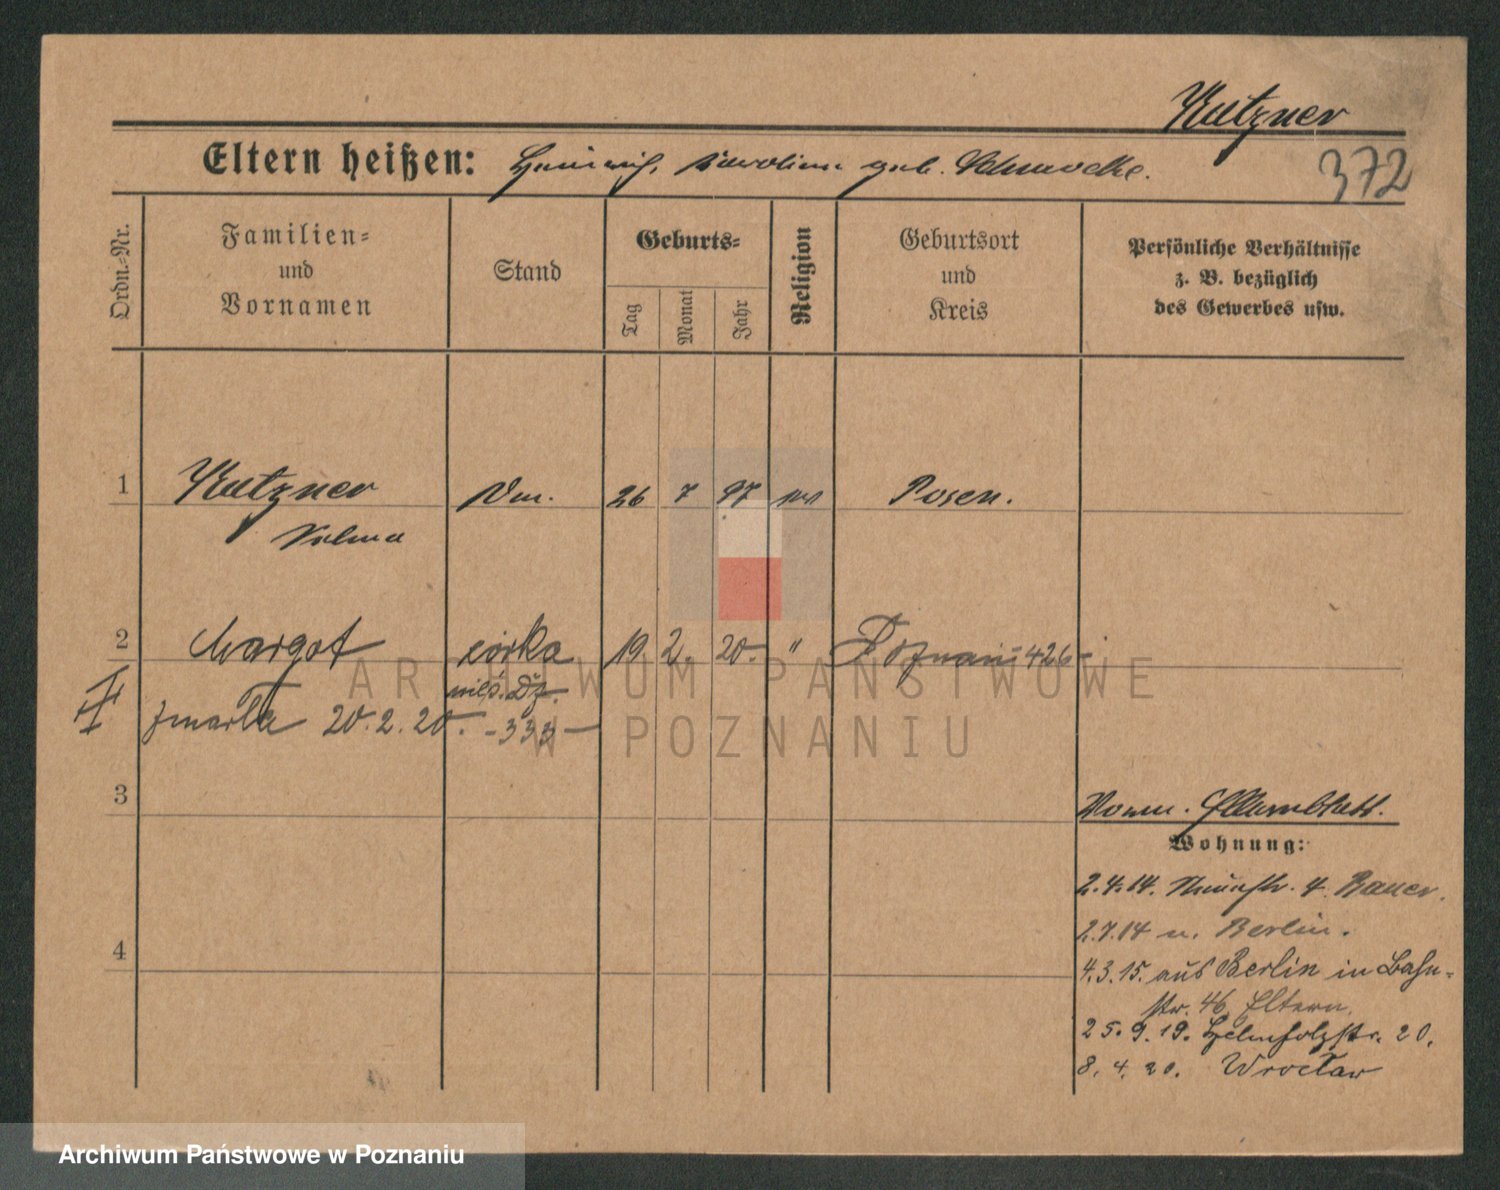 Kutzner
Eltern heißen: Heinrich, Karoline geb.
372
Ordn.-Nr.
Familien-
und
Vornamen
Stand
Geburts-
Tag
Monat
Jahr
Religion
Geburtsort
und
Kreis
Persönliche Verhältnisse
z. B. bezüglich
des Gewerbes usw.
1 Kutzner 26 7 97 Posen.
Selma
2 Margot córka 19 2. 20. " Poznań 426
zmarła 20.2.20. -333-
3
Elternblatt.
Wohnung:
2.4.14. 4. Bauer.
2.7.14 n. Berlin.
4
4.3.15. aus Berlin in Bahn-
str. 46 Eltern.
25.9.19. Helmholzstr. 20.
8.4.20. Wrocław
ARCHIWUM PAŃSTWOWE
W POZNANIU
Archiwum Państwowe w Poznaniu